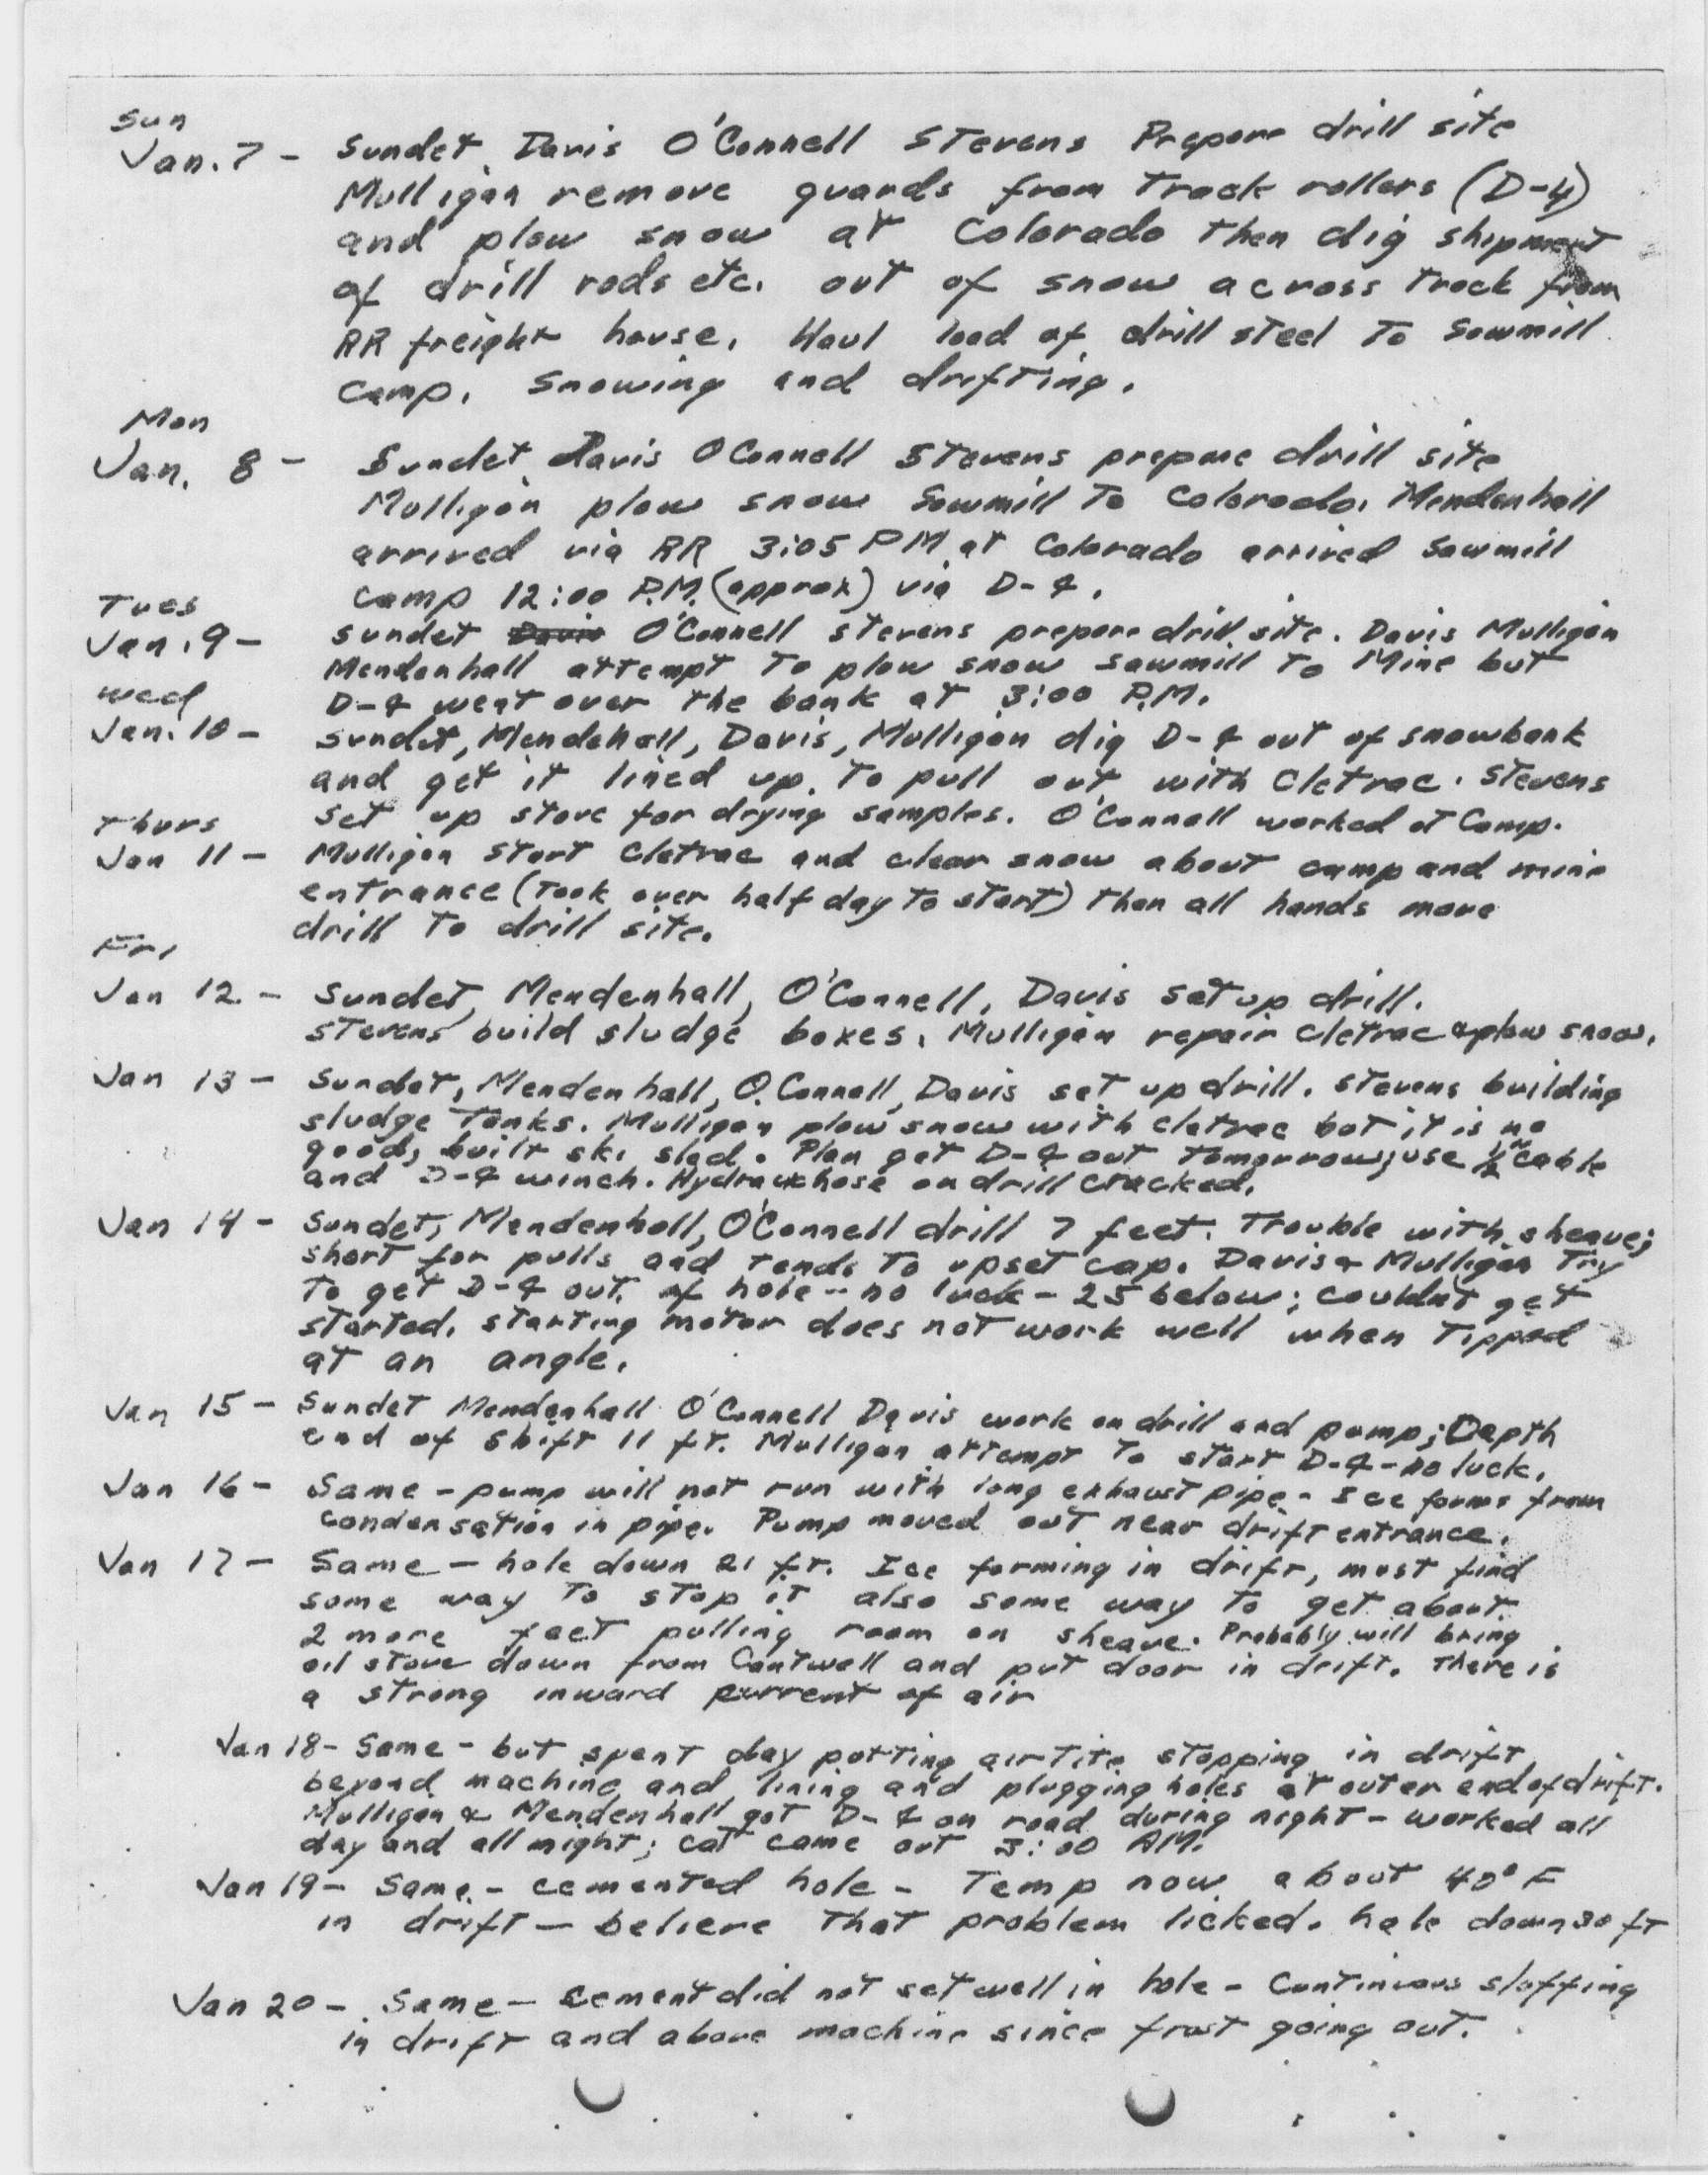 Sun
Jan. 7 - Sundet Davis O'Connell Stevens Prepare drill site
Mulligan remove guards from Track rollers (D-4)
and plow snow at Colorado then dig shipment
of drill rods etc. out of snow across track from
RR freight house. Haul load of drill steel to Sawmill
Camp. Snowing and drifting.
Mon
Jan. 8 - Sundet Davis O'Connell Stevens prepare drill site
Mulligan plow snow Sawmill to Colorado. Mendenhall
arrived via RR 3:05 PM at Colorado arrived Sawmill
Camp 12:00 P.M. (approx) via D-4.
Tues
Jan. 9 - Sundet Davis O'Connell Stevens prepare drill site. Davis Mulligan
Mendenhall attempt to plow snow sawmill to Mine but
D-4 went over the bank at 3:00 P.M.
Wed
Jan. 10 - Sundet, Mendehall, Davis, Mulligan dig D-4 out of snowbank
and get it lined up to pull out with Cletrac. Stevens
set up stove for drying samples. O'Connell worked at Camp.
Thurs
Jan 11 - Mulligan start Cletrac and clear snow about camp and mine
entrance (Took over half day to start) then all hands move
drill to drill site.
Fri
Jan 12 - Sundet, Mendenhall, O'Connell, Davis set up drill.
Stevens build sludge boxes. Mulligan repair Cletrac & plow snow.
Jan 13 - Sundet, Mendenhall, O'Connell, Davis set up drill. Stevens building
sludge Tanks. Mulligan plow snow with Cletrac but it is no
good, built ski sled. Plan get D-4 out tomorrow; use 1/2" cable
and D-4 winch. Hydraulic hose on drill cracked.
Jan 14 - Sundet, Mendenhall, O'Connell drill 7 feet. Trouble with sheave;
short for pulls and tends to upset cap. Davis & Mulligan Try
to get D-4 out of hole -- no luck - 25 below; couldn't get
started. Starting motor does not work well when Tipped
at an angle.
Jan 15 - Sundet Mendenhall O'Connell Davis work on drill and pump; Depth
end of shift 11 ft. Mulligan attempt to start D-4 - no luck.
Jan 16 - Same - pump will not run with long exhaust pipe - Ice forms from
condensation in pipe. Pump moved out near drift entrance.
Jan 17 - Same - hole down 21 ft. Ice forming in drift, must find
some way to stop it also some way to get about
2 more feet pulling room on sheave. Probably will bring
oil stove down from Cantwell and put door in drift. There is
a strong inward current of air
Jan 18 - Same - but spent day putting airtite stopping in drift
beyond machine and lining and plugging holes at outer end of drift.
Mulligan & Mendenhall got D-4 on road during night - worked all
day and all night; cat came out 3:00 AM.
Jan 19 - Same - cemented hole - Temp now about 40° F
in drift - believe That problem licked. hole down 30 ft
Jan 20 - Same - cement did not set well in hole - Continuous sloffing
in drift and above machine since frost going out.